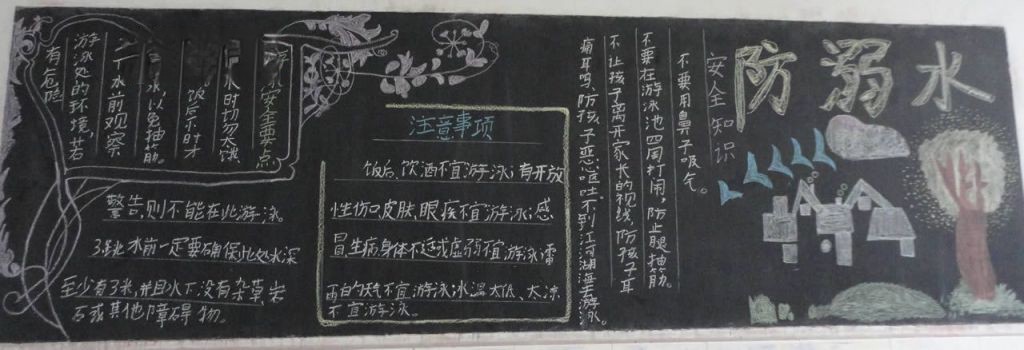 防溺水
安全知识
不要用鼻子吸气。
不要在游泳池四周打闹,防止腿抽筋。
不让孩子离开家长的视线,防孩子耳
痛耳鸣,防孩子恶心呕吐.不到江河湖海去游泳。
注意事项
饭后、饮酒不宜游泳;有开放
性伤口皮肤、眼疾不宜游泳;感
冒生病身体不适或虚弱不宜游泳;雷
雨的天气不宜游泳;水温太低、太凉
不宜游泳。
安全要点
水时切勿太饿
饭后不时才
水以免抽筋。
水前观察
游泳处的环境,若
有危险
警告,则不能在此游泳。
跳水前一定要确保此处水深
至少有3米,并且水下没有杂草岩
石或其他障碍物。